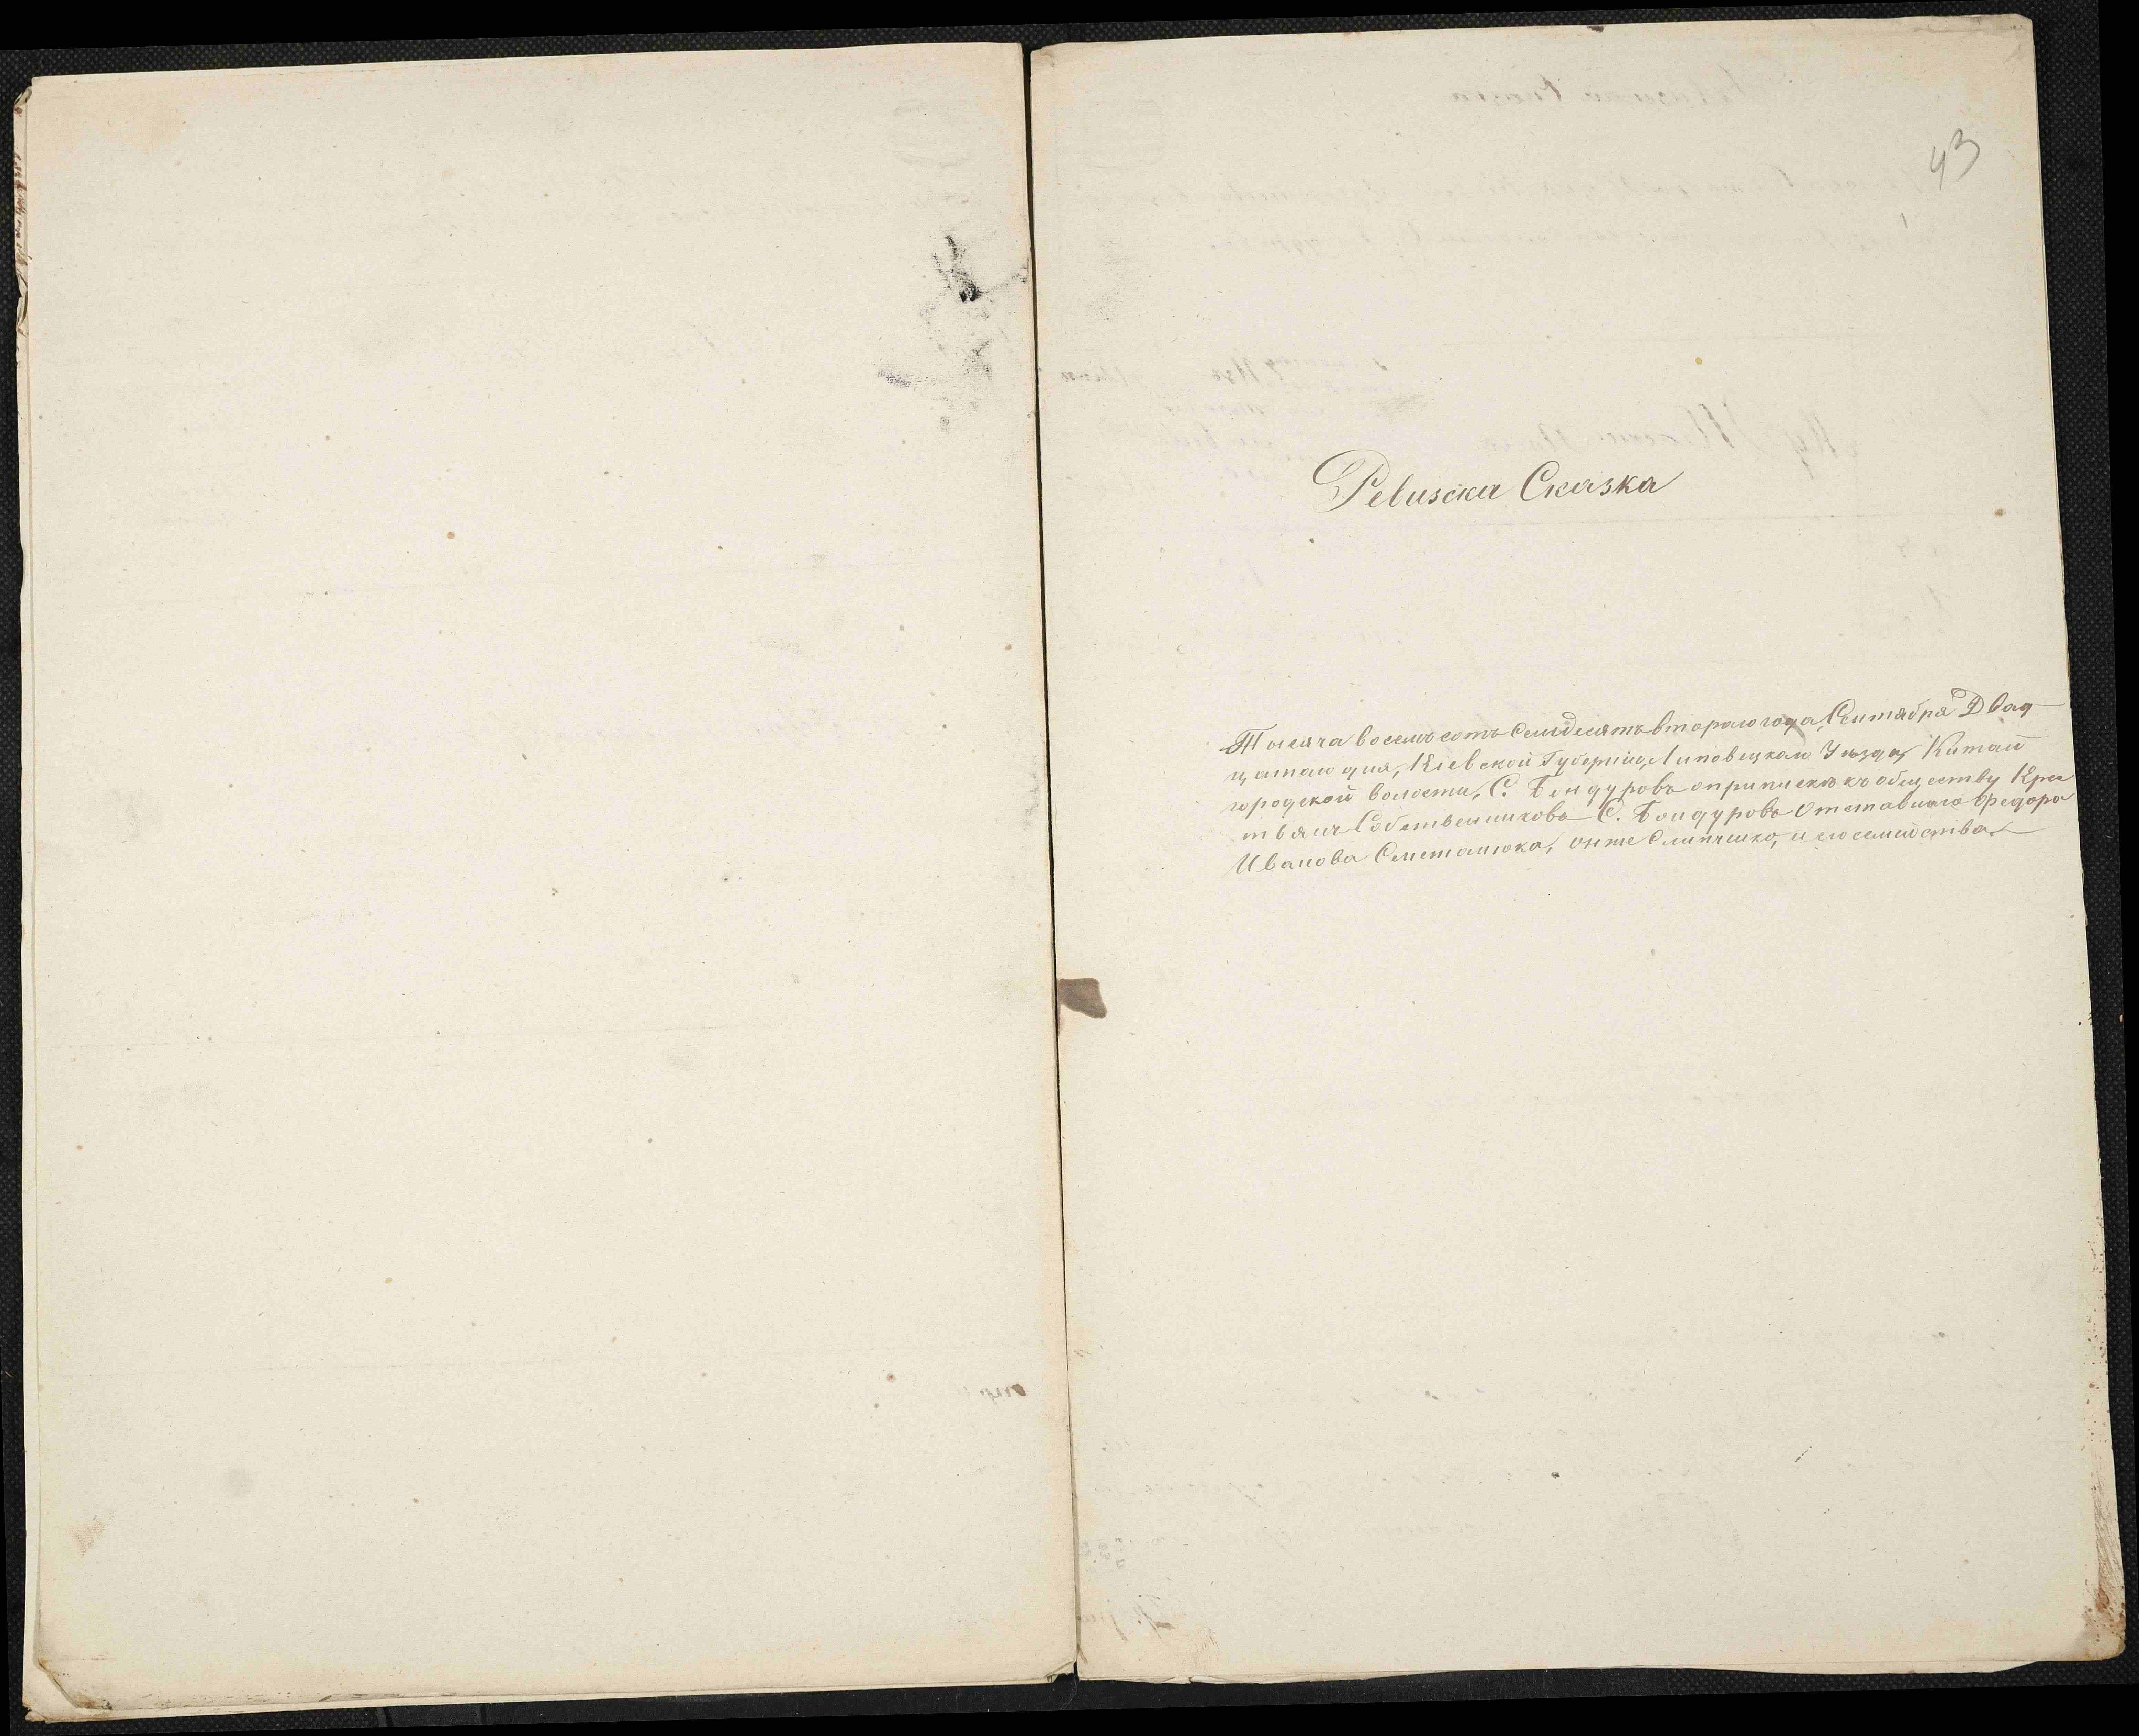 43
Ревизска Сказка
Тысяча восемьсотъ Семдесятъ втораго года, Сентября Двад
цатаго дня, Кіевской Губерніи, Липовецкаго Уѣзда, Китай
городской волости, С. Бондуровъ о припискѣ къ обществу Крес
тьянъ Собственниковъ С. Бондуровъ Отставнаго Федора
Иванова Сметанюка, онже Слипчика, и его семейства